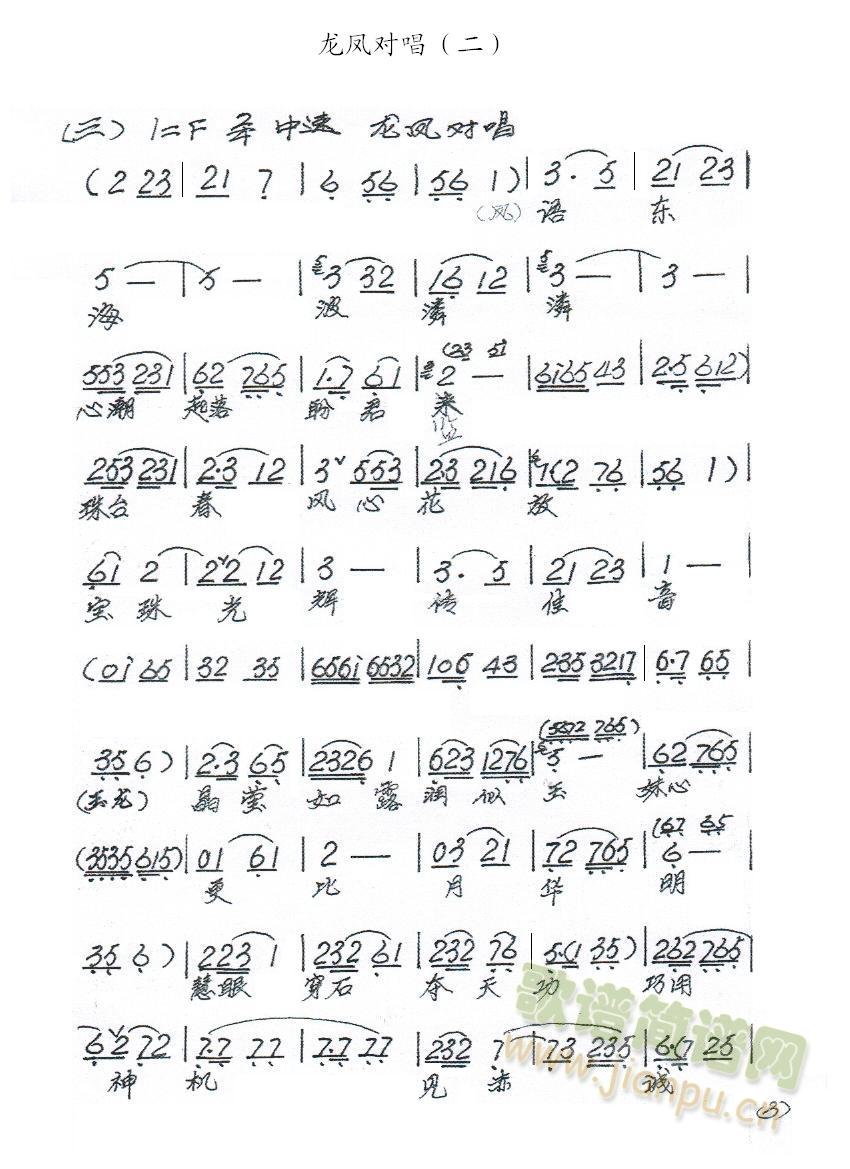 龙凤对唱（二）
（三）1=F 中速 龙凤对唱
(2 23 | 21 7 | 6 56 | 56 1) | 3. 5 | 21 23 |
（凤） 语 东
5 — | 5 — | 3 32 | 16 12 | 3 — | 3 — |
海 波 潾 潾
553 231 | 62 765 | 1.7 61 | 2 — | 6i65 43 | 2.5 612) |
(23 5)
心潮 起落 盼 君 来
253 231 | 2.3 12 | 3 553 | 2.3 216 | 7(2 76 | 56 1) |
珠台 春 风 心 花 放
61 2 | 2 2 12 | 3 — | 3. 5 | 21 23 | 1 — |
宝 珠 光 辉 传 佳 音
(0i 65 | 32 35 | 656i 6532 | 106 43 | 235 3217 | 6.7 65 |
35 6) | 2.3 65 | 2326 1 | 623 1276 | 5 — | 62 765 |
(5672 765)
（玉龙） 晶 莹 如 露 润 似 玉 妹心
(3535 615) | 01 61 | 2 — | 03 21 | 72 765 | 6 — |
(67 65
更 比 月 华 明
35 6) | 223 1 | 232 61 | 232 76 | 5.(1 35) | 262 765 |
慧眼 穿石 夺 天 功 巧用
62 72 | 7.7 77 | 7.7 77 | 232 7 | 73 235 | 6.(7 25 |
神 机 见 赤 诚
歌谱简谱网
www.jianpu.cn
(3)